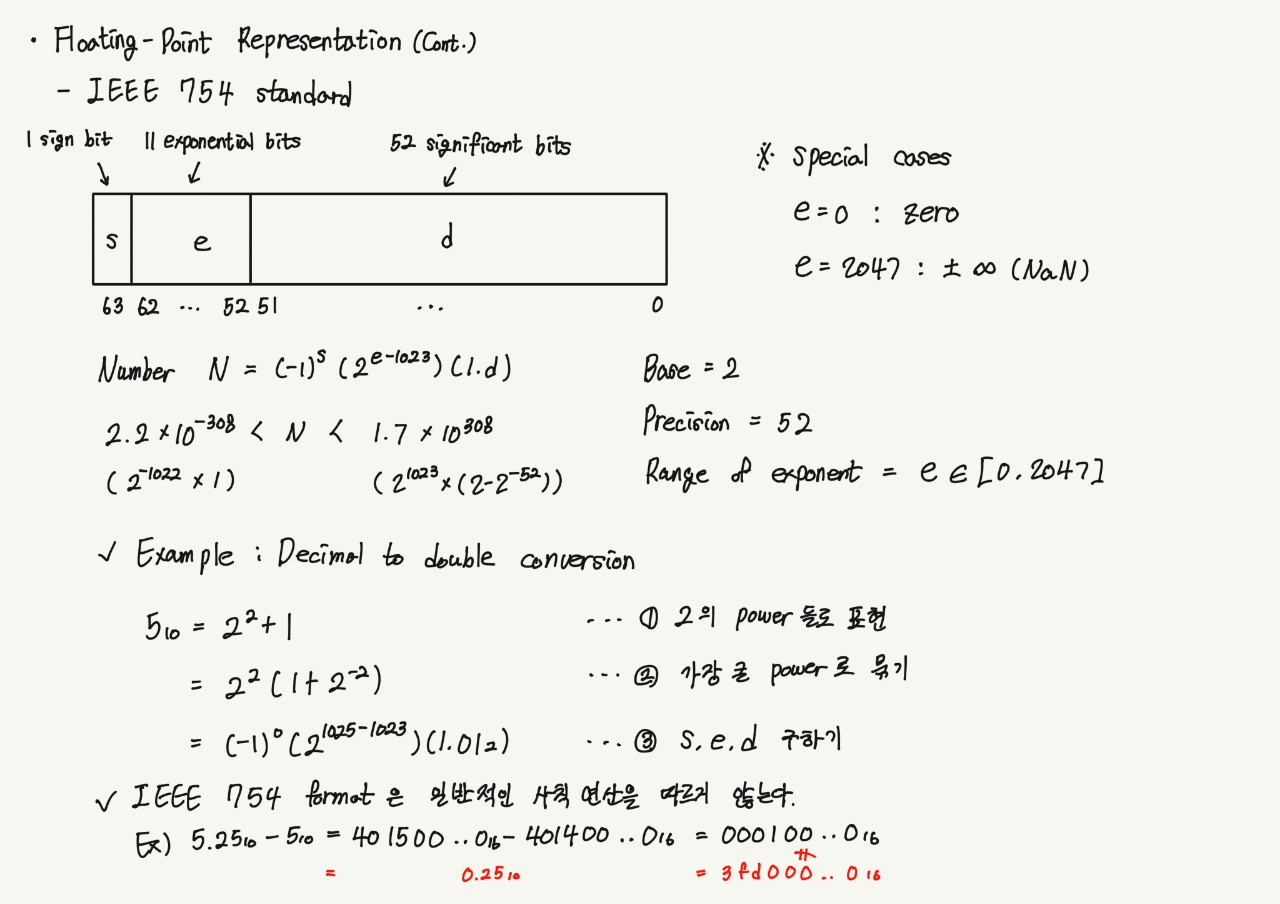 · Floating-Point Representation (Cont.)
- IEEE 754 standard
1 sign bit 11 exponential bits 52 significant bits
s e d
63 62 ... 52 51 ... 0
※ special cases
e=0 : zero
e=2047 : ±∞ (NaN)
Number N = (-1)^s (2^{e-1023}) (1.d)
2.2×10^{-308} < N < 1.7×10^{308}
(2^{-1022} × 1) (2^{1023}×(2-2^{-52}))
Base = 2
Precision = 52
Range of exponent = e ∈ [0.2047]
✓ Example : Decimal to double conversion
5₁₀ = 2²+1 ... ① 2의 power 들로 표현
= 2² (1+2^{-2}) ... ② 가장 큰 power로 묶기
= (-1)^0 (2^{1025-1023}) (1.01₂) ... ③ s.e.d 구하기
✓ IEEE 754 format 은 일반적인 사칙 연산을 따르게 않는다.
Ex) 5.25₁₀ - 5₁₀ = 401500..0₁₆ - 401400..0₁₆ = 000100..0₁₆
= 0.25₁₀ = 3fd000..0₁₆